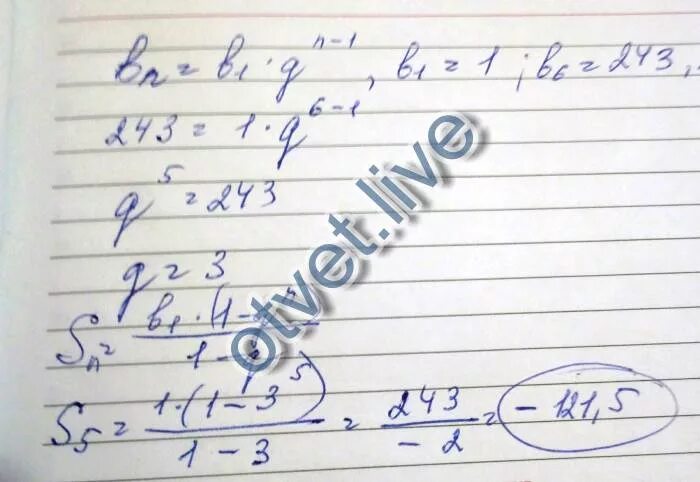 bₙ = b₁ · qⁿ⁻¹, b₁ = 1 ; b₆ = 243,
243 = 1 · q⁶⁻¹
q⁵ = 243
q = 3
Sₙ = b₁ · (1 - qⁿ) / 1 - q
S₅ = 1 · (1 - 3⁵) / 1 - 3 = 243 / -2 = -121,5
otvet.live